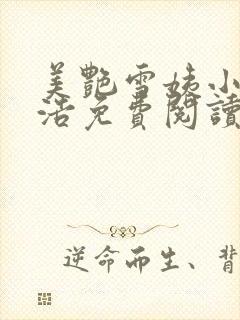 美艷雪姨小
活免費閱讀
逆命而生、背